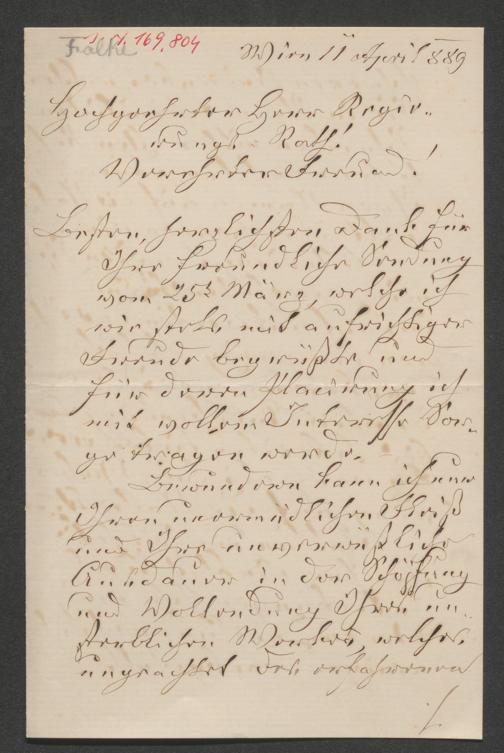 Falke
169.804
Wien 11 April 889
Hochgeehrter Herr Regie-
rungs Rath!
Verehrter Freund!
Besten, herzlichsten Dank für
Ihre freundliche Sendung
vom 25t März, welche ich
wie stets mit aufrichtiger
Freude begrüßte und
für deren Placirung ich
mit vollem Interesse Sor-
ge tragen werde.
Bewundern kann ich nur
Ihren unermüdlichen Fleiß
und Ihre unverwüstliche
Ausdauer in der Schöpfung
und Vollendung Ihres un-
sterblichen Werkes, welches
ungeachtet des erfahrenen